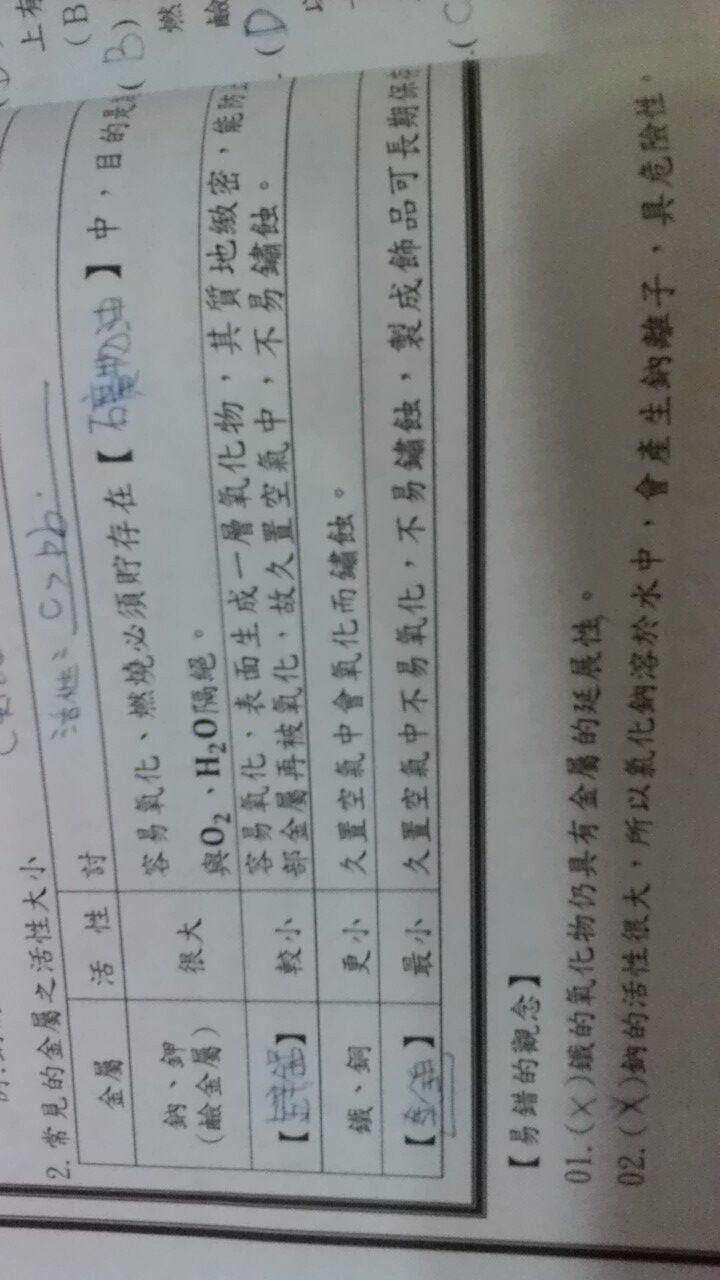 2. 常見的金屬之活性大小
活性: C > Pb.
金屬 活性 討
鈉、鉀 很大 容易氧化、燃燒必須貯存在【石礦物油】中，目的是
(鹼金屬) 與O₂、H₂O隔絕。
【鋅鋁】 較小 容易氧化，表面生成一層氧化物，其質地緻密，能防止
部金屬再被氧化，故久置空氣中，不易鏽蝕。
鐵、銅 更小 久置空氣中會氧化而鏽蝕。
【 】 最小 久置空氣中不易氧化，不易鏽蝕，製成飾品可長期保存
【易錯的觀念】
01.(X)鐵的氧化物仍具有金屬的延展性。
02.(X)鈉的活性很大，所以氯化鈉溶於水中，會產生鈉離子，具危險性。
上有
(B
(B)
燃
鹼
(D
以
.(C